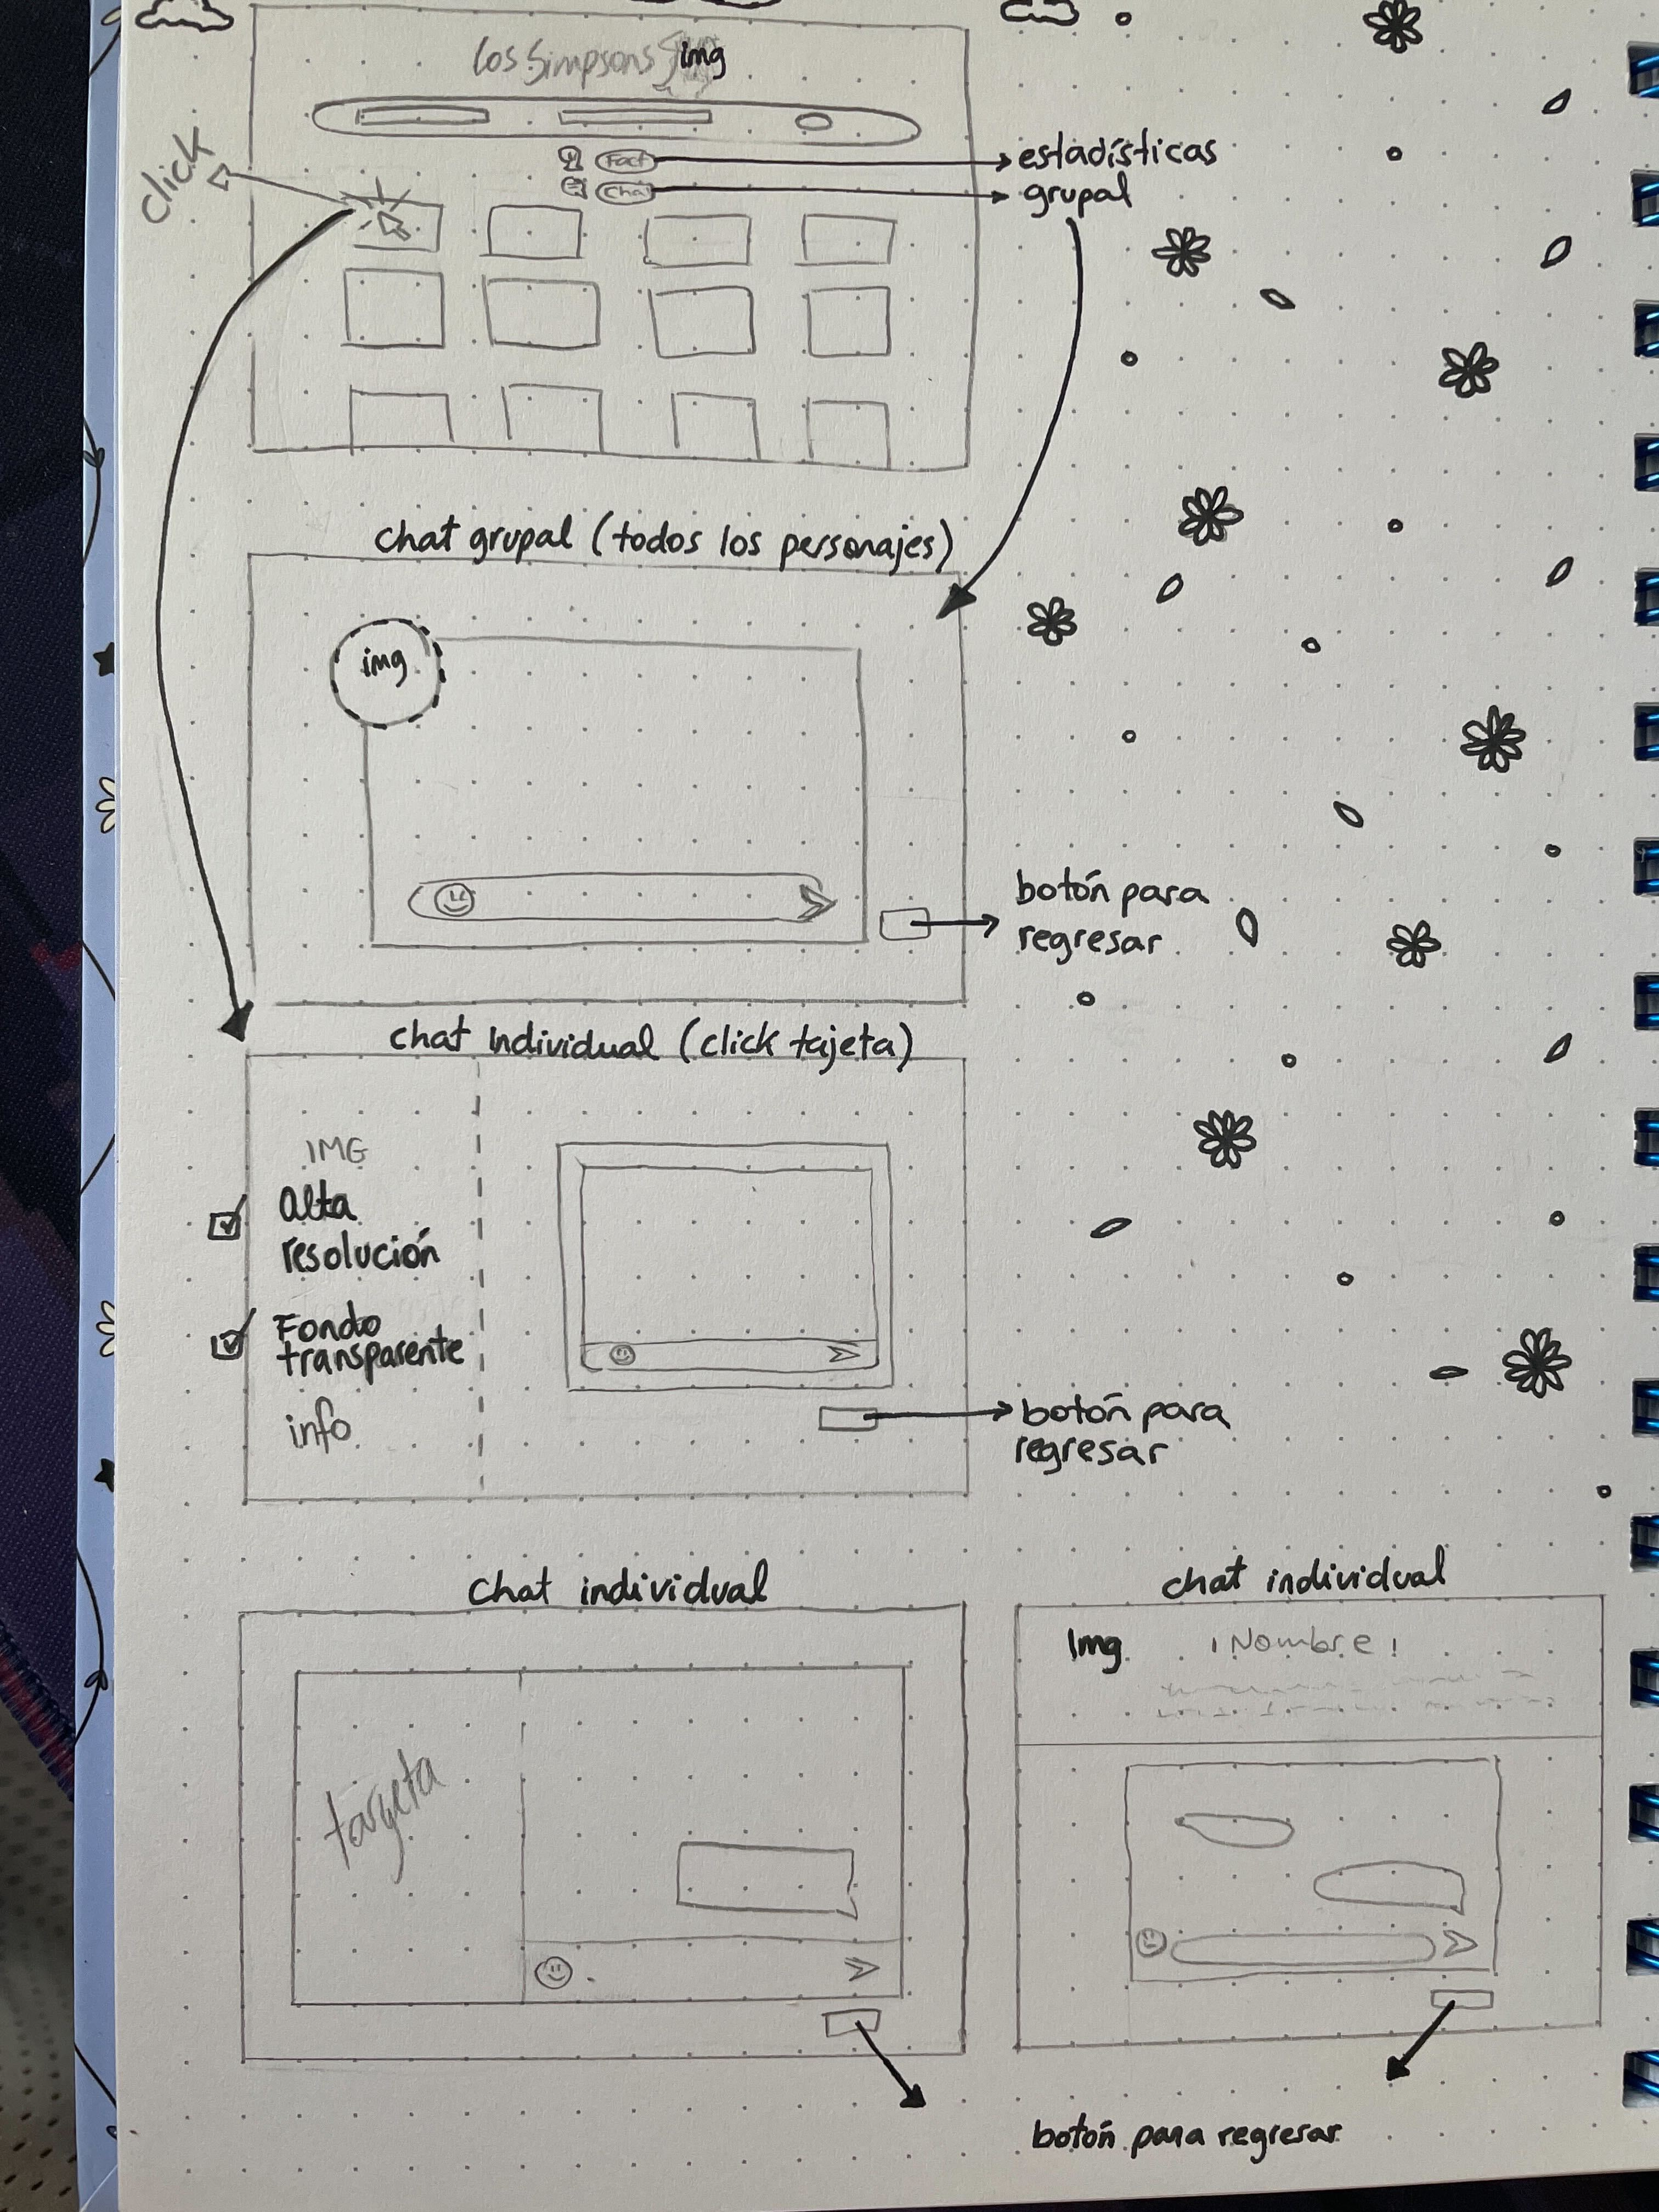 los Simpsons img
click
Fact
estadísticas
Chat
grupal
chat grupal (todos los personajes)
img
botón para
regresar
chat Individual (click tajeta)
IMG
Alta
resolución
Fondo
transparente
info
botón para
regresar
chat individual
targeta
chat individual
Img
¡Nombre!
botón para regresar